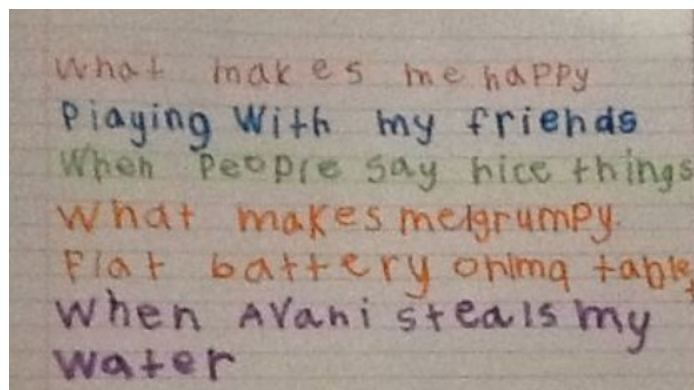 What makes me happy
Playing With my friends
When People say nice things
What makes me grumpy.
Flat battery on my table
When Avani steals my
water